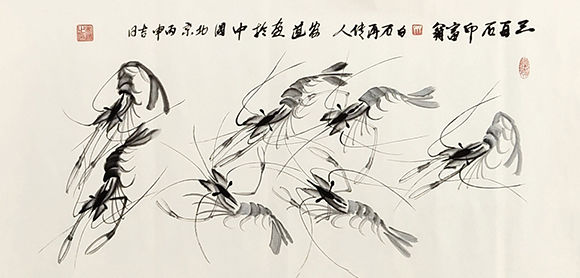 三百石印富翁白石再传人道画於中国北京丙申吉日